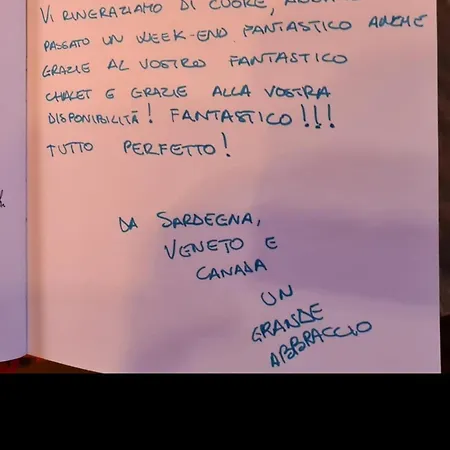 VI RINGRAZIAMO DI CUORE,
PASSATO UN WEEK-END FANTASTICO ANCHE
GRAZIE AL VOSTRO FANTASTICO
CHALET E GRAZIE ALLA VOSTRA
DISPONIBILITÀ! FANTASTICO!!!
TUTTO PERFETTO!
DA SARDEGNA,
VENETO E
CANADA
UN
GRANDE
ABBRACCIO